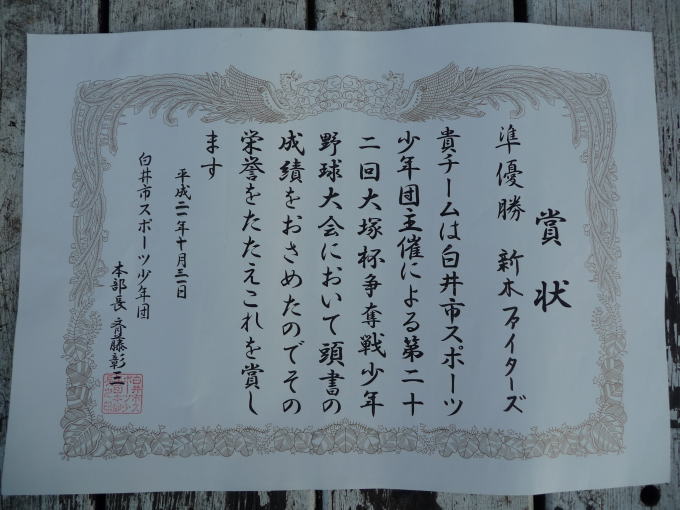 賞状
準優勝 新木ファイターズ
貴チームは白井市スポーツ
少年団主催による第二十
二回大塚杯争奪戦少年
野球大会において頭書の
成績をおさめたのでその
栄誉をたたえこれを賞し
ます
平成二一年十月三一日
白井市スポーツ少年団
本部長 斉藤彰三